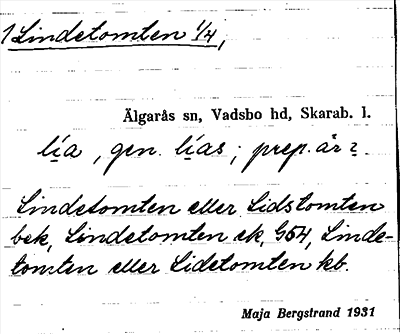 1 Lindetomten 1/4,
Älgarås sn, Vadsbo hd, Skarab. l.
lia, gen. lias; prep. är 2.
Lindetomten eller Lidstomten
bek, Lindetomten ek, G54, Linde-
tomten eller Lidetomten kb.
Maja Bergstrand 1931